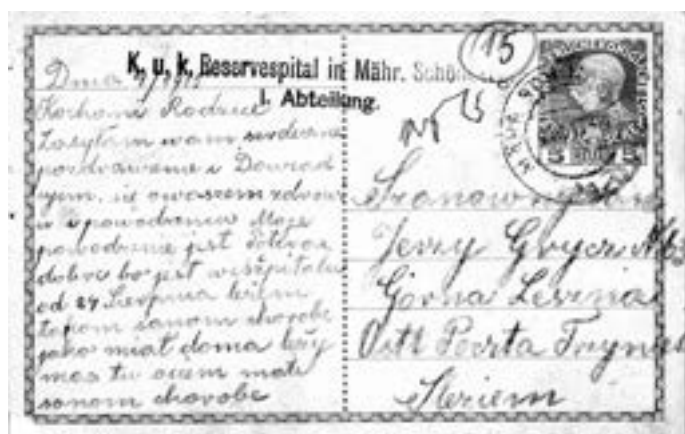 K. u. k. Reservespital in Mähr. Schön
I. Abteilung.
15
No 15
Dnia
Kochani Rodzice
Zasyłam wam serdeczne
pozdrowienie i Dowiad
ujem się o waszem zdrow
iu i powodzeniu Moje
powodzenie jest
dobre bo jest w szpitalu
od 24 Sierpnia leżem
tąkom sanom chorobe
jako miał doma
mas tu ocem
sanom chorobe
5 5
Szanowny Pan
Jerzy Grycz N 63
Górna Leszna
Ostt Poczta Trzyniec